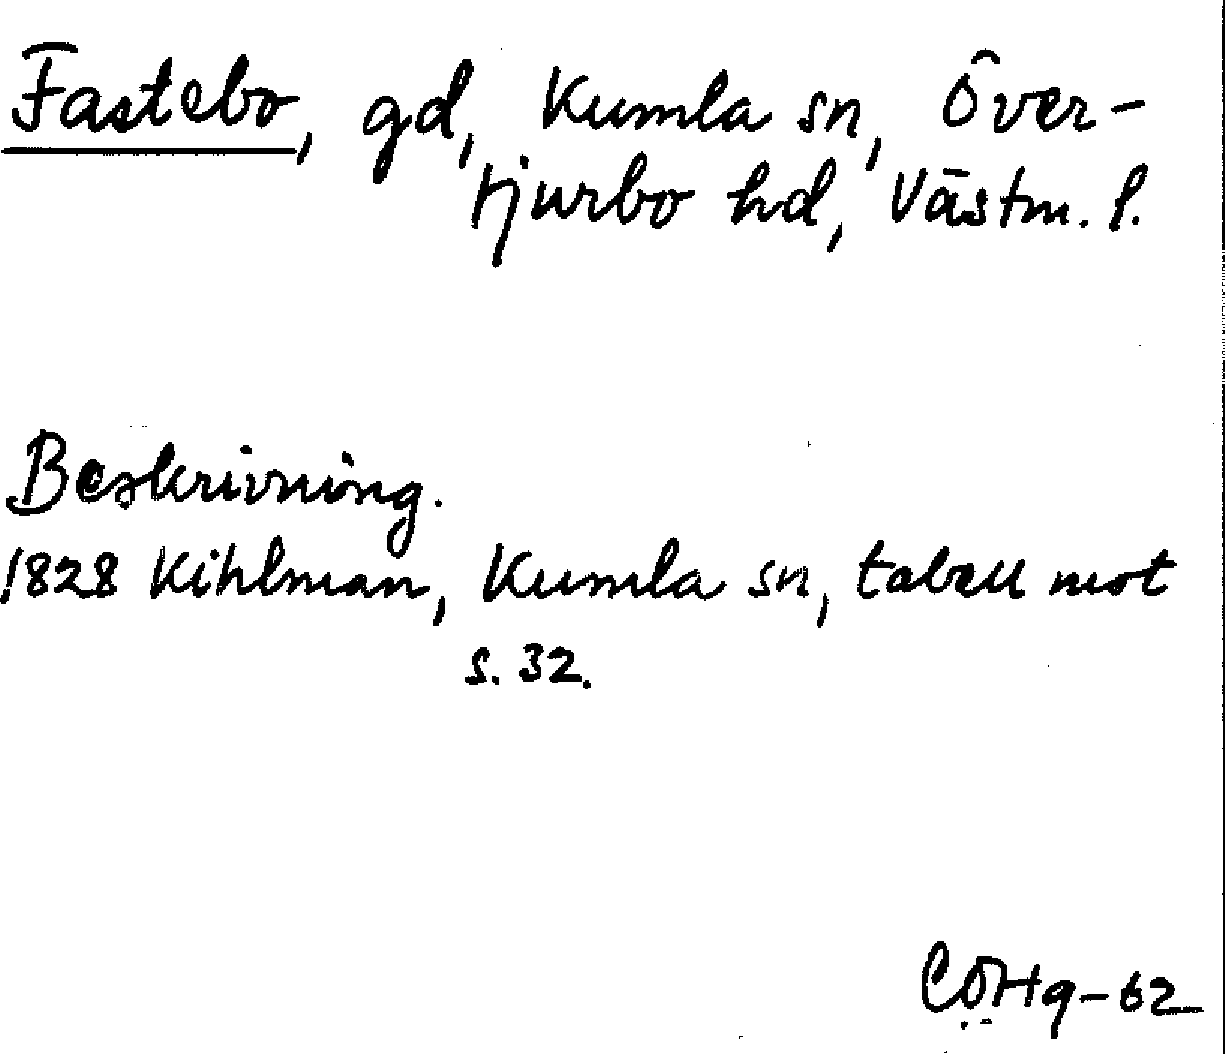 Fastebo, gd, Kumla sn, Över-
tjurbo hd, Västm. l.
Beskrivning.
1828 Kihlman, Kumla sn, tabell mot
s. 32.